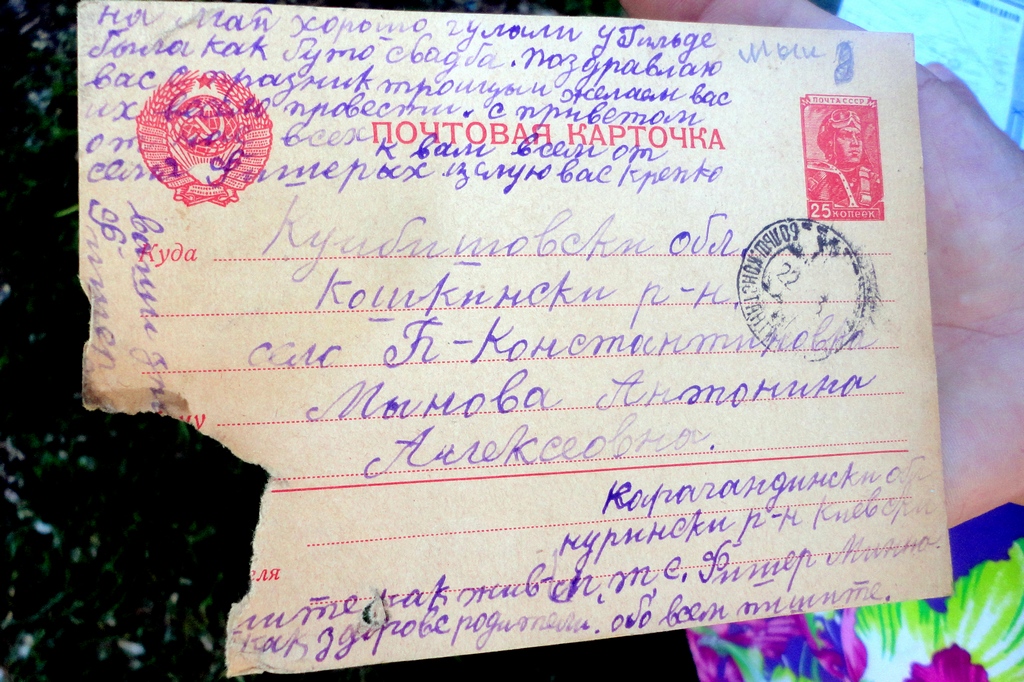 на май хорошо гуляли у Гильде
была как буто свадба. Поздравляю
вас с празник троицыи желаем вас
их провести. с приветом
от всех к вам всем от
семи Фитерых целую вас крепко
ПОЧТОВАЯ КАРТОЧКА
ПОЧТА СССР
25 КОПЕЕК
Куда
Куйбитовски обл.
Кошкински р-н
село Б-Константиновка
Мынова Антонина
Алексеовна.
Карагандински обл
нурински р-н Киевски
с. Фитер Минна.
ишите как жив
как здоровє родители. обо всем пишите.